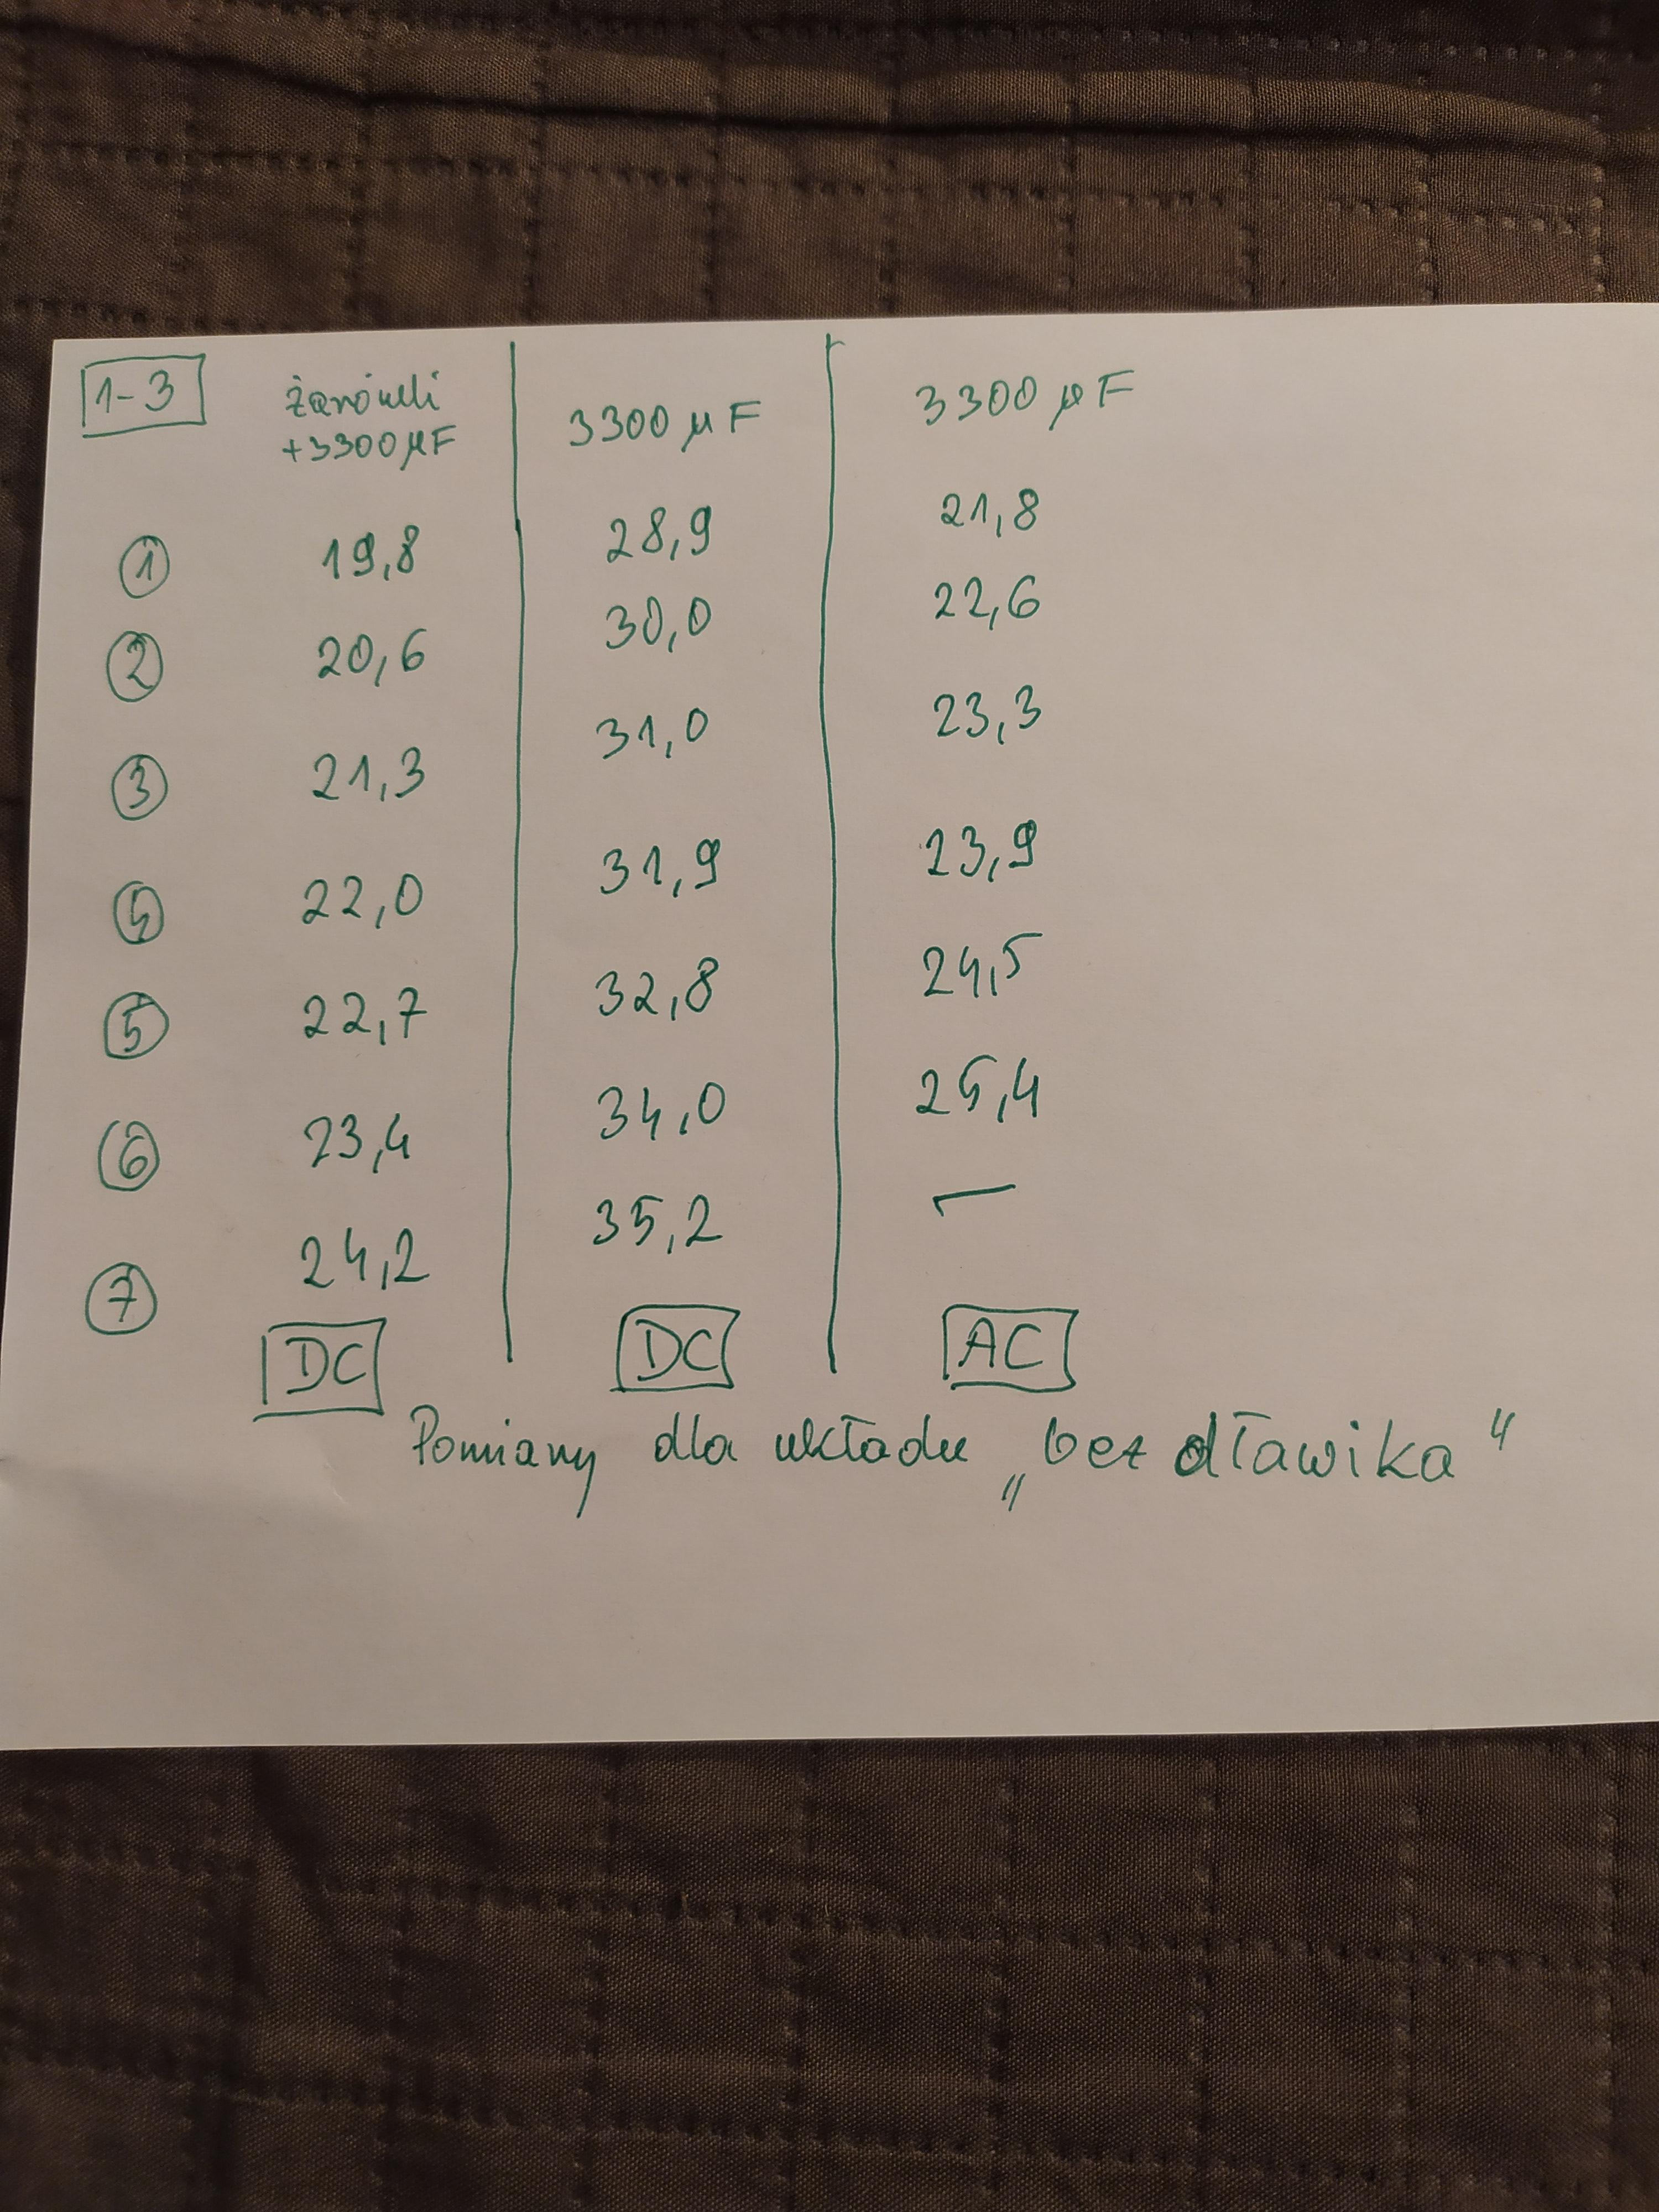 1-3 żarówki 3300 µF 3300 µF
+3300 µF
① 19,8 28,9 21,8
② 20,6 30,0 22,6
③ 21,3 31,0 23,3
④ 22,0 31,9 23,9
⑤ 22,7 32,8 24,5
⑥ 23,4 34,0 25,4
⑦ 24,2 35,2 —
DC DC AC
Pomiary dla układu „bez dławika"